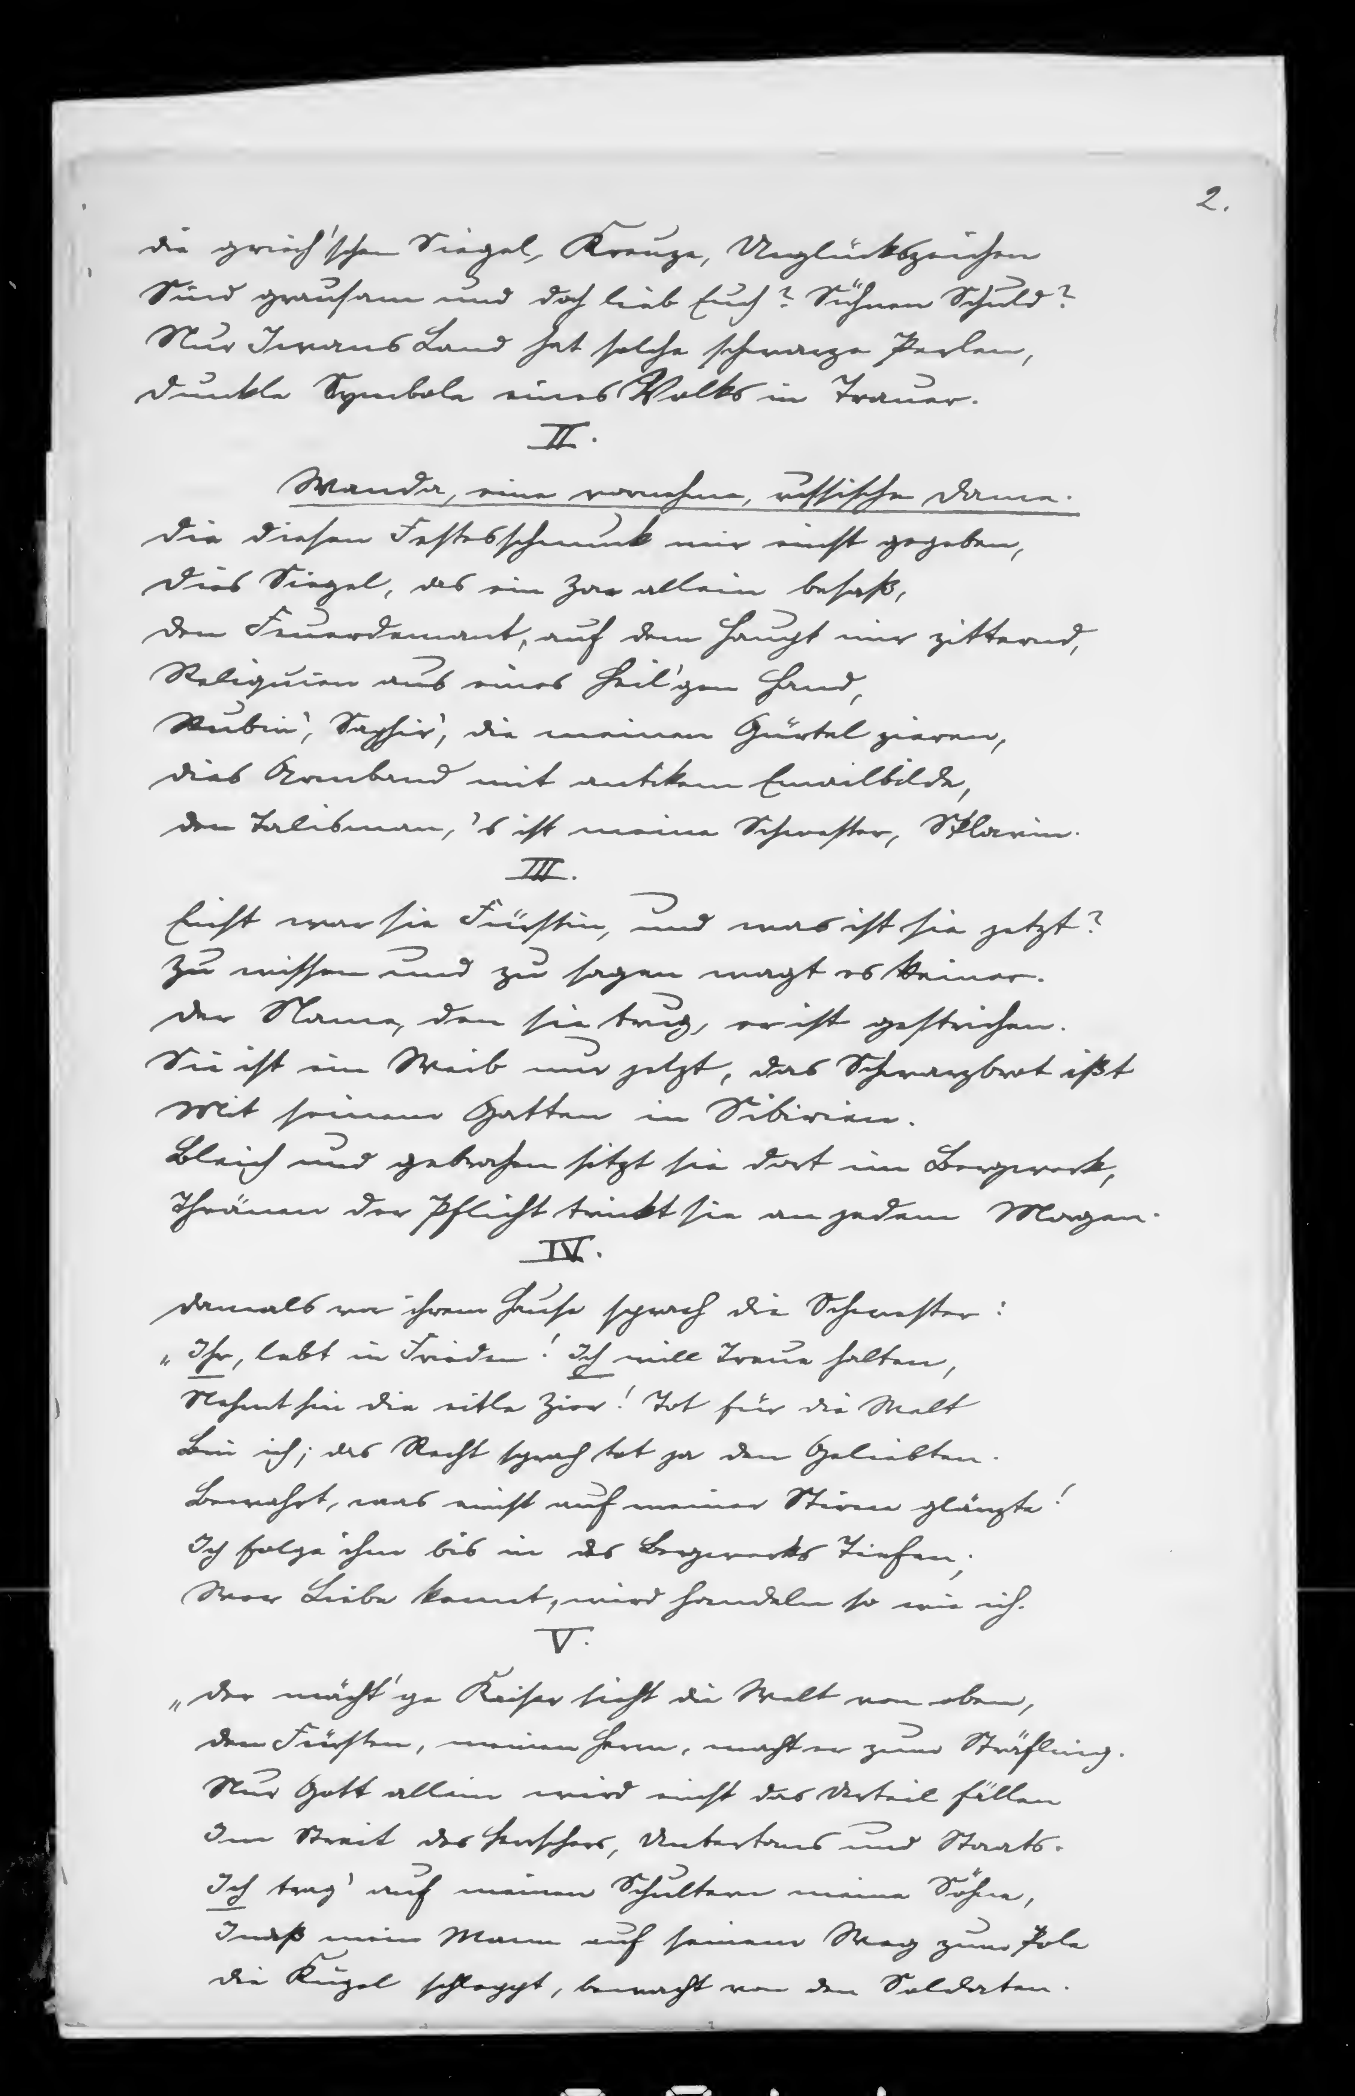 2.
die griech'schen Siegel, Kreuze, Unglückszeichen
Sind grausam und doch lieb Euch? Sühnen Schuld?
Nur Iwans Land hat solche schwarze Perlen,
dunkle Symbole eines Volks in Trauer.
II.
Wanda, eine vornehme, russische Dame.
Die diesen Festesschmuck mir einst gegeben,
dies Siegel, das ein Zar allein besaß,
den Feuerdemant, auf dem Haupt mir zitternd,
Reliquien aus eines Heil'gen Hand,
Rubin', Saphir', die meinen Gürtel zieren,
dies Armband mit antikem Emailbilde,
den Talisman, 's ist meine Schwester, Sklavin.
III.
Einst war sie Fürstin, und was ist sie jetzt?
Zu wissen und zu sagen wagt es keiner.
Der Name, den sie trug, er ist gestrichen.
Sie ist ein Weib nur jetzt, das Schwarzbrot ißt
Mit seinem Gatten in Sibirien.
Bleich und gebrochen sitzt sie dort im Bergwerk,
Thränen der Pflicht trinkt sie an jedem Morgen.
IV.
Damals vor ihrem Hause sprach die Schwester:
„Ihr, lebt in Frieden! Ich will Treue halten,
Nehmt hin die eitle Zier! Tot für die Welt
Bin ich; das Recht sprach tot ja den Geliebten.
Bewahrt, was einst auf meiner Stirne glänzte!
Ich folge ihm bis in des Bergwerks Tiefen;
Wer Liebe kennt, wird handeln so wie ich.
V.
„Der mächt'ge Kaiser sieht die Welt von oben,
den Fürsten, meinen Herrn, macht er zum Sträfling.
Nur Gott allein wird einst das Urteil fällen
Im Streit des Herrschers, Untertans und Staats.
Ich trag' auf meinen Schultern meine Söhne,
Indeß mein Mann auf seinem Weg zum Pole
die Kugel schleppt, bewacht von den Soldaten.